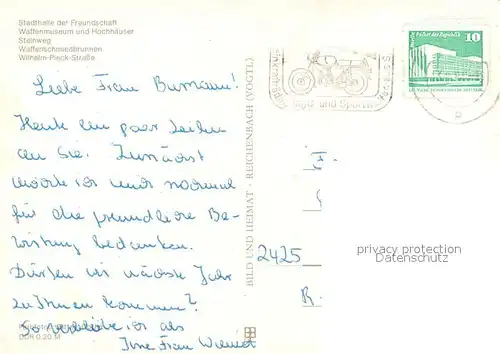 Stadthalle der Freundschaft
Waffenmuseum und Hochhäuser
Steinweg
Waffenschmiedbrunnen
Wilhelm-Pieck-Straße
Liebe Frau Bumann!
Heute ein paar Zeilen
an Sie. Zunächst
möchte ich mich nochmal
für die freundliche Be-
wirtung bedanken.
Dürfen wir nächste Jahr
zu Ihnen kommen?
So verbleibe ich als
Ihre Frau
DDR 0,20 M
BILD UND HEIMAT · REICHENBACH (VOGTL)
und Sportw
10
F.
2425
R.
privacy protection
Datenschutz